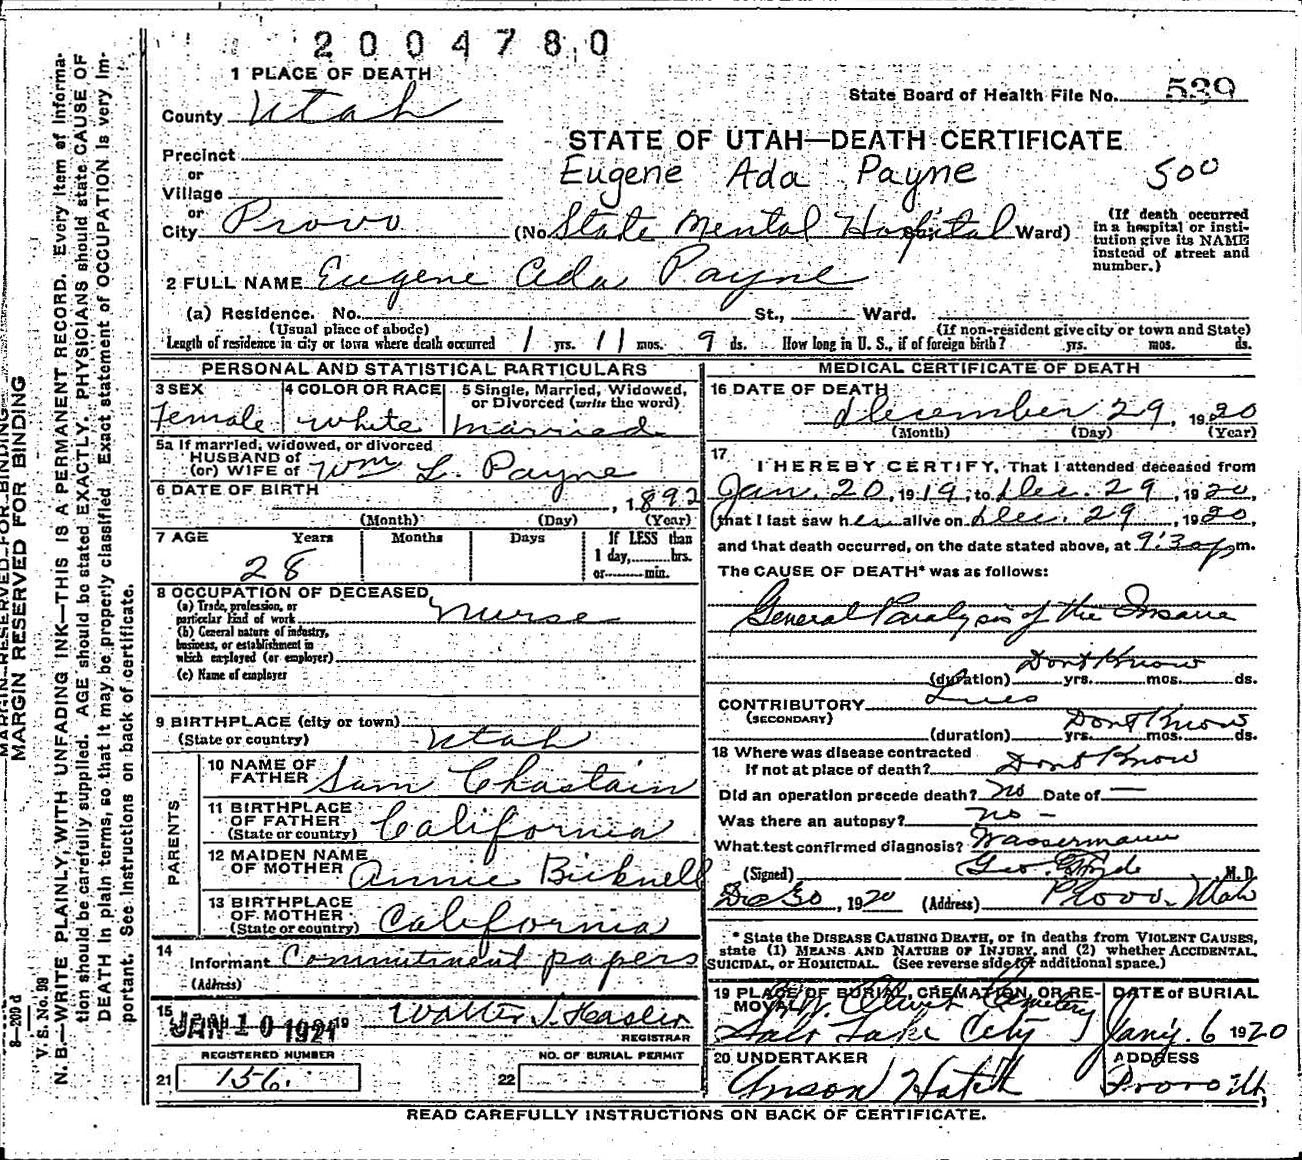 2004780
1 PLACE OF DEATH
State Board of Health File No. 539
County Utah
STATE OF UTAH—DEATH CERTIFICATE
Precinct
or
Eugene Ada Payne 500
Village
or
City Provo
(No. State Mental Hospital Ward)
(If death occurred in a hospital or institution give its NAME instead of street and number.)
2 FULL NAME Eugene Ada Payne
(a) Residence. No. St., Ward.
(Usual place of abode) (If non-resident give city or town and State)
Length of residence in city or town where death occurred 1 yrs. 11 mos. 9 ds. How long in U. S., if of foreign birth? yrs. mos. ds.
PERSONAL AND STATISTICAL PARTICULARS
3 SEX
Female
4 COLOR OR RACE
white
5 Single, Married, Widowed, or Divorced (write the word)
married
5a If married, widowed, or divorced
HUSBAND of
(or) WIFE of Wm L. Payne
6 DATE OF BIRTH
, 1892
(Month) (Day) (Year)
7 AGE Years Months Days
28
If LESS than
1 day, hrs.
or min.
8 OCCUPATION OF DECEASED
(a) Trade, profession, or
particular kind of work Nurse
(b) General nature of industry,
business, or establishment in
which employed (or employer)
(c) Name of employer
9 BIRTHPLACE (city or town)
(State or country) Utah
PARENTS
10 NAME OF
FATHER Sam Chastain
11 BIRTHPLACE
OF FATHER
(State or country) California
12 MAIDEN NAME
OF MOTHER Annie Bicknell
13 BIRTHPLACE
OF MOTHER
(State or country) California
14
Informant Commitment papers
(Address)
15 JAN 10 1921 19 Walter J. Hasler
REGISTRAR
REGISTERED NUMBER
21 156.
NO. OF BURIAL PERMIT
22
MEDICAL CERTIFICATE OF DEATH
16 DATE OF DEATH
December 29, 1920
(Month) (Day) (Year)
17
I HEREBY CERTIFY, That I attended deceased from
Jan. 20, 1919, to Dec. 29, 1920,
(that I last saw her alive on Dec. 29, 1920,
and that death occurred, on the date stated above, at 9:30 p m.
The CAUSE OF DEATH* was as follows:
General Paralysis of the Insane
Dont Know
(duration) yrs. mos. ds.
CONTRIBUTORY Lues
(SECONDARY)
Dont Know
(duration) yrs. mos. ds.
18 Where was disease contracted
If not at place of death? Dont Know
Did an operation precede death? No Date of —
Was there an autopsy? No -
What test confirmed diagnosis? Wassermann
(Signed) Geo. E. Hyde M. D.
Dec 30, 1920 (Address) Provo, Utah
* State the DISEASE CAUSING DEATH, or in deaths from VIOLENT CAUSES,
state (1) MEANS AND NATURE OF INJURY, and (2) whether ACCIDENTAL,
SUICIDAL, or HOMICIDAL. (See reverse side for additional space.)
19 PLACE OF BURIAL, CREMATION, OR RE-
MOVAL Mt. Olivet Cemetery
Salt Lake City
DATE of BURIAL
Jany. 6 1920
20 UNDERTAKER
Anson Hatch
ADDRESS
Provo Ut
READ CAREFULLY INSTRUCTIONS ON BACK OF CERTIFICATE.
MARGIN RESERVED FOR BINDING
MARGIN RESERVED FOR BINDING
V. S. No. 98
N. B.—WRITE PLAINLY, WITH UNFADING INK—THIS IS A PERMANENT RECORD. Every item of informa-
tion should be carefully supplied. AGE should be stated EXACTLY. PHYSICIANS should state CAUSE OF
DEATH in plain terms, so that it may be properly classified. Exact statement of OCCUPATION is very im-
portant. See instructions on back of certificate.